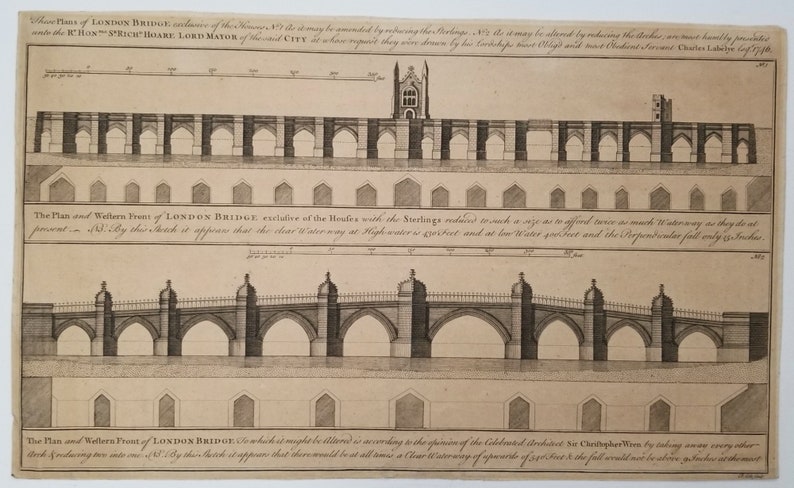 These Plans of LONDON BRIDGE exclusive of the Houses Nº.1 As it may be amended by reducing the Sterlings. Nº.2 As it may be altered by reducing the Arches, are most humbly presented
unto the Rt. HON.ble Sr. RICHd. HOARE LORD MAYOR of the said CITY at whose request they were drawn by his Lordships most Oblig'd and most Obedient Servant Charles Labelye Esq.r 1746.
Nº.1
50 40 30 20 10 0 50 100 150 200 250 300 350 feet
The Plan and Western Front of LONDON BRIDGE exclusive of the Houses with the Sterlings reduced to such a size as to afford twice as much Waterway as they do at
present. NB. By this Sketch it appears that the clear Water way at High water is 430 Feet and at low Water 400 Feet and the Perpendicular fall only 15 Inches.
Nº.2
The Plan and Western Front of LONDON BRIDGE To which it might be Altered is according to the opinion of the Celebrated Architect Sir Christopher Wren by taking away every other
Arch & reducing two into one. NB. By this Sketch it appears that there would be at all times a Clear Waterway of upwards of 540 Feet & the fall would not be above 9 Inches at the most